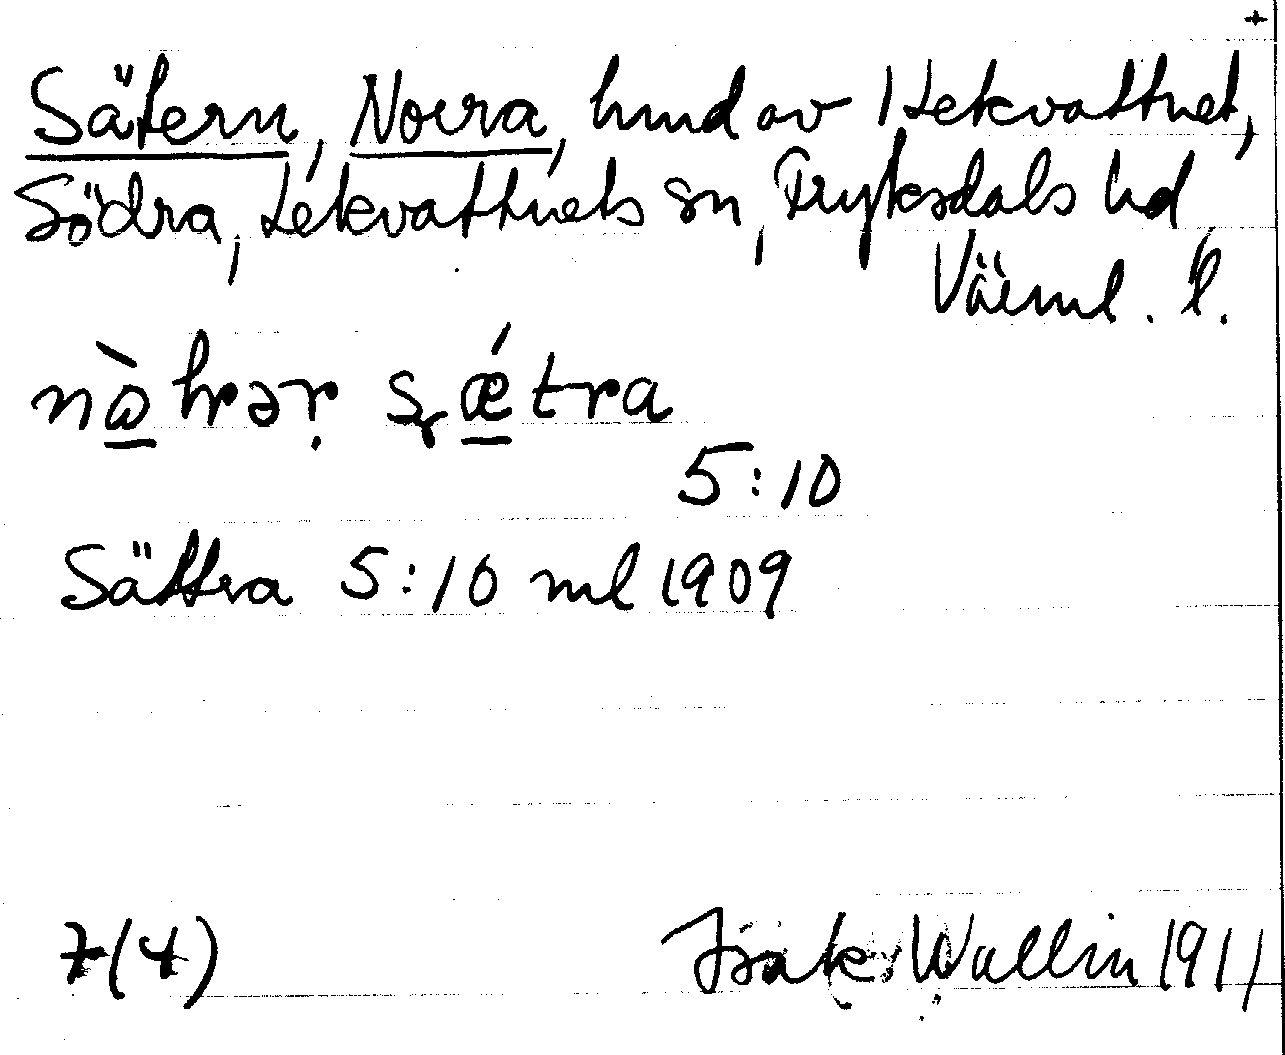 +
Sätern, Norra, hmd av 1 Lekvattnet,
Södra, Lekvattnets sn, Fryksdals hd
Värml. l.
nòhrər sǽtra
5:10
Sättra 5:10 ml 1909
7(4)
Isak Wallin 1911